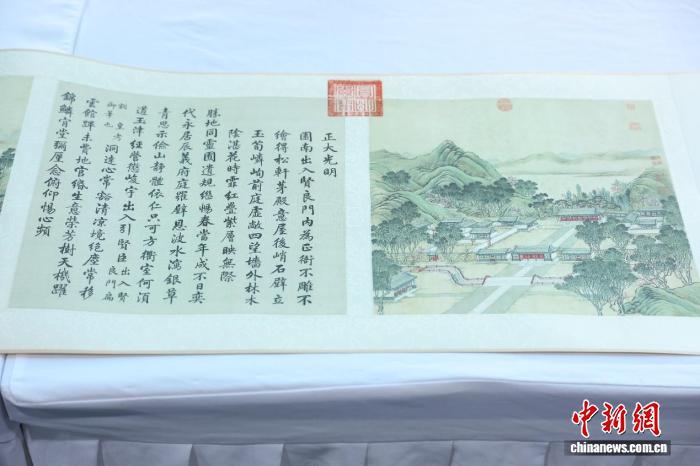 正大光明
園南出入賢良門內為正衙不雕不
繪得松軒茅殿意屋後峭石壁立
玉筍嶙峋前庭虛敞四望牆外林木
陰湛花時霏紅疊紫層映無際
勝地同靈囿遺規繼暢春當年成不日奕
代永居辰義府庭羅璧恩波水瀉銀草
青思示儉山靜體依仁只可方衢室何須
道玉津經營懲峻宇出入引賢臣出入賢良門扁
額皇考御筆也洞達心常豁清涼境絕塵常移
雲館蹕未費地官緡生意榮芳樹天機躍
錦鱗肯堂彌厪念俯仰惕心頻
中新網
www.chinanews.com.cn
chinanews.com